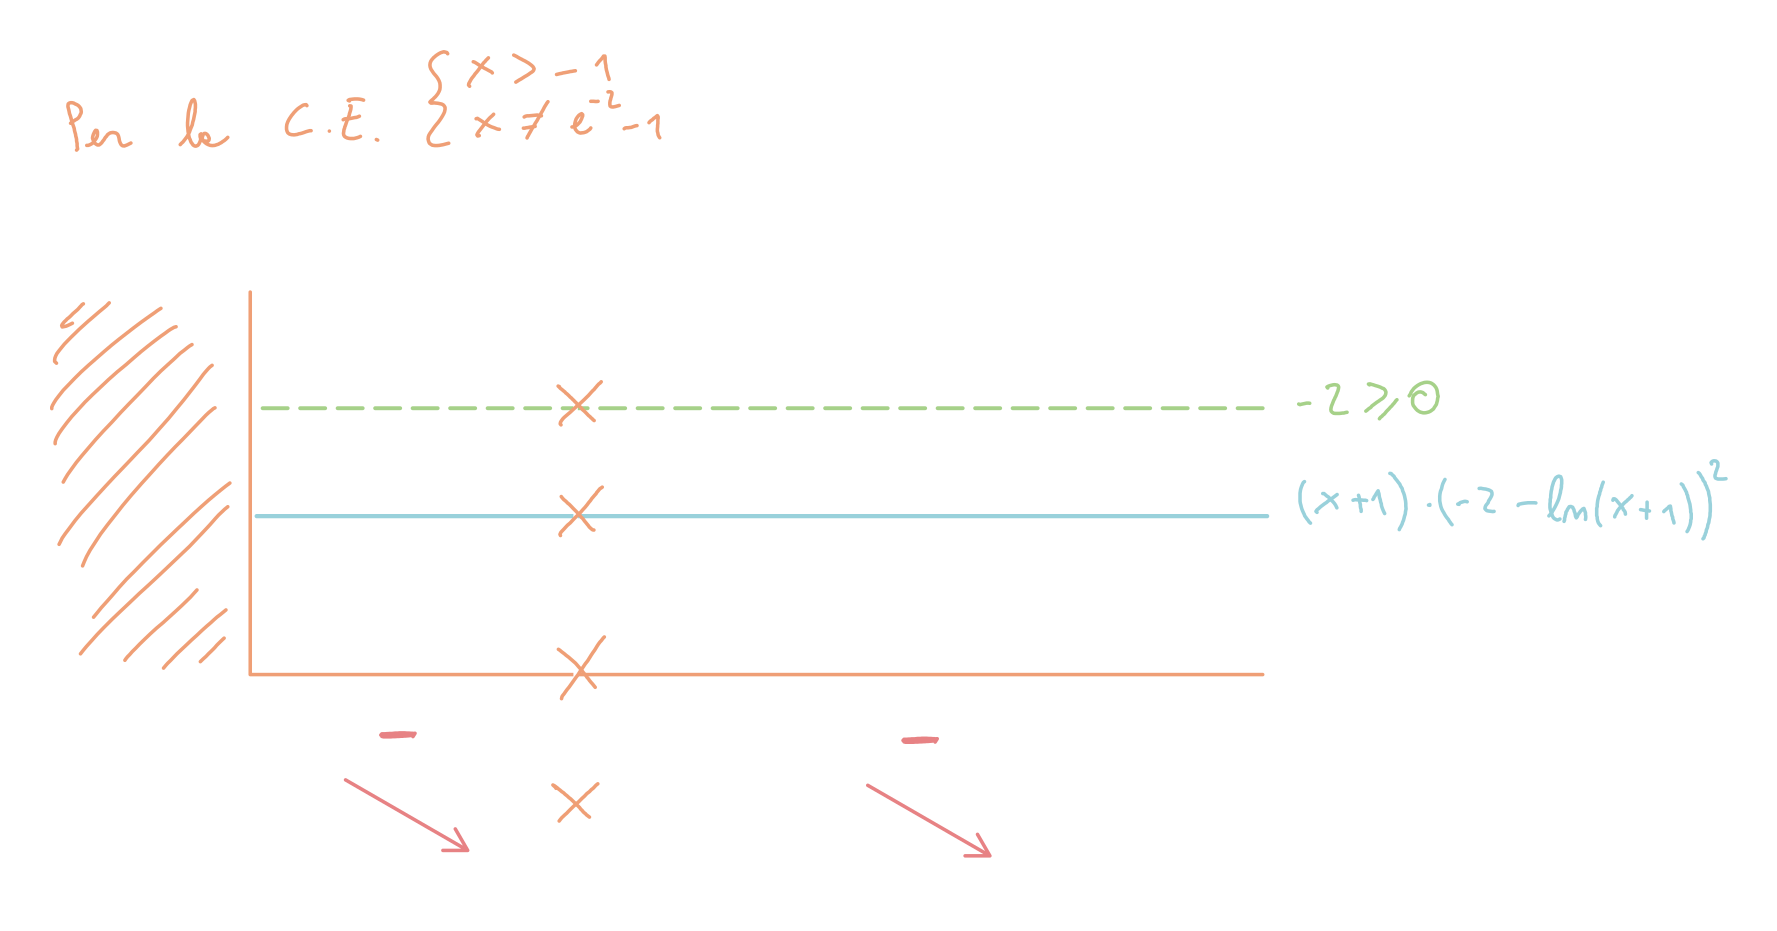 Per le C.E. { x > -1
x ≠ e^-2 - 1
-2 ⩾ 0
(x+1)·(-2-ln(x+1))^2